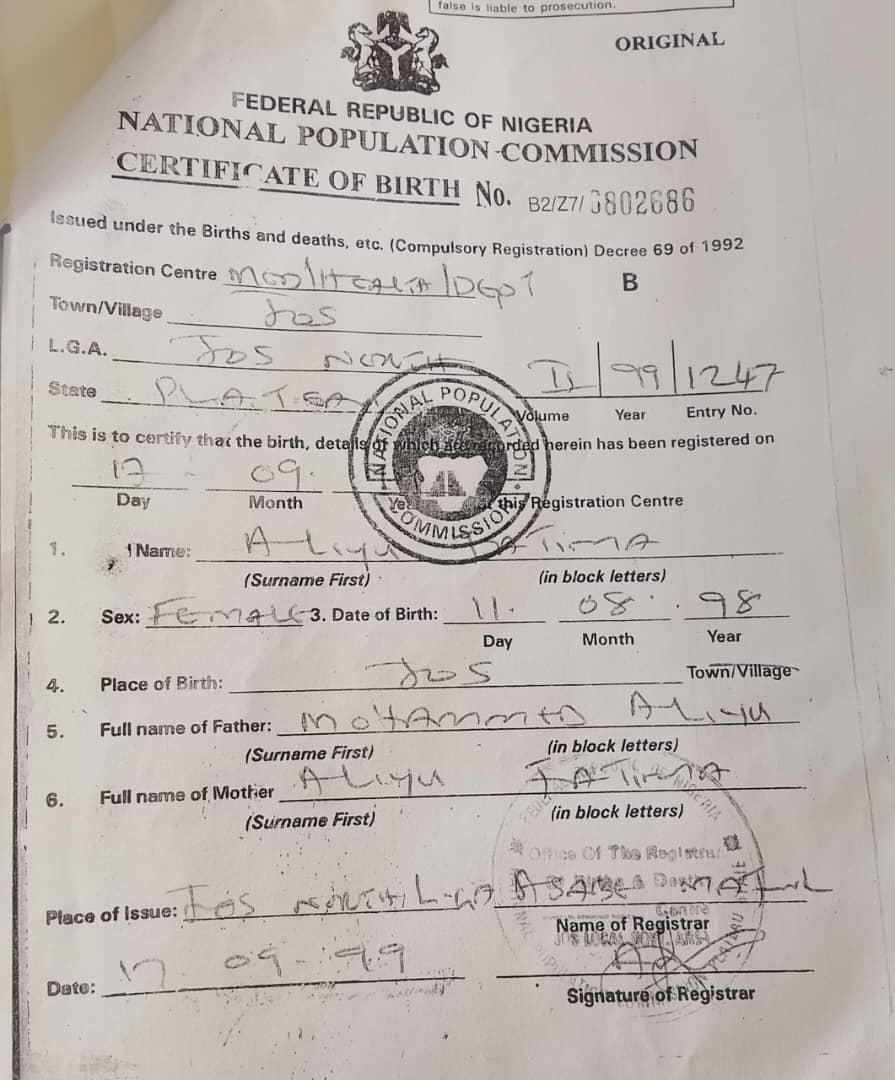 false is liable to prosecution.
ORIGINAL
FEDERAL REPUBLIC OF NIGERIA
NATIONAL POPULATION COMMISSION
CERTIFICATE OF BIRTH No. B2/Z7/ 6802686
Issued under the Births and deaths, etc. (Compulsory Registration) Decree 69 of 1992
Registration Centre MCD/HEALTH/DEPT B
Town/Village JOS
L.G.A. JOS NORTH
State PLATEAU
II 99 1247
Volume Year Entry No.
This is to certify that the birth, details of which are recorded herein has been registered on
17 09.
Day Month Year at this Registration Centre
NATIONAL POPULATION COMMISSION
1. Name: ALIYU FATIMA
(Surname First) (in block letters)
2. Sex: FEMALE 3. Date of Birth: 11. 08. 98
Day Month Year
4. Place of Birth: JOS Town/Village
5. Full name of Father: MOHAMMED ALIYU
(Surname First) (in block letters)
6. Full name of Mother ALIYU FATIMA
(Surname First) (in block letters)
Office Of The Registrar
Place of Issue: JOS NORTH L.GA ASABE
Name of Registrar
Date: 17 09 99
Signature of Registrar